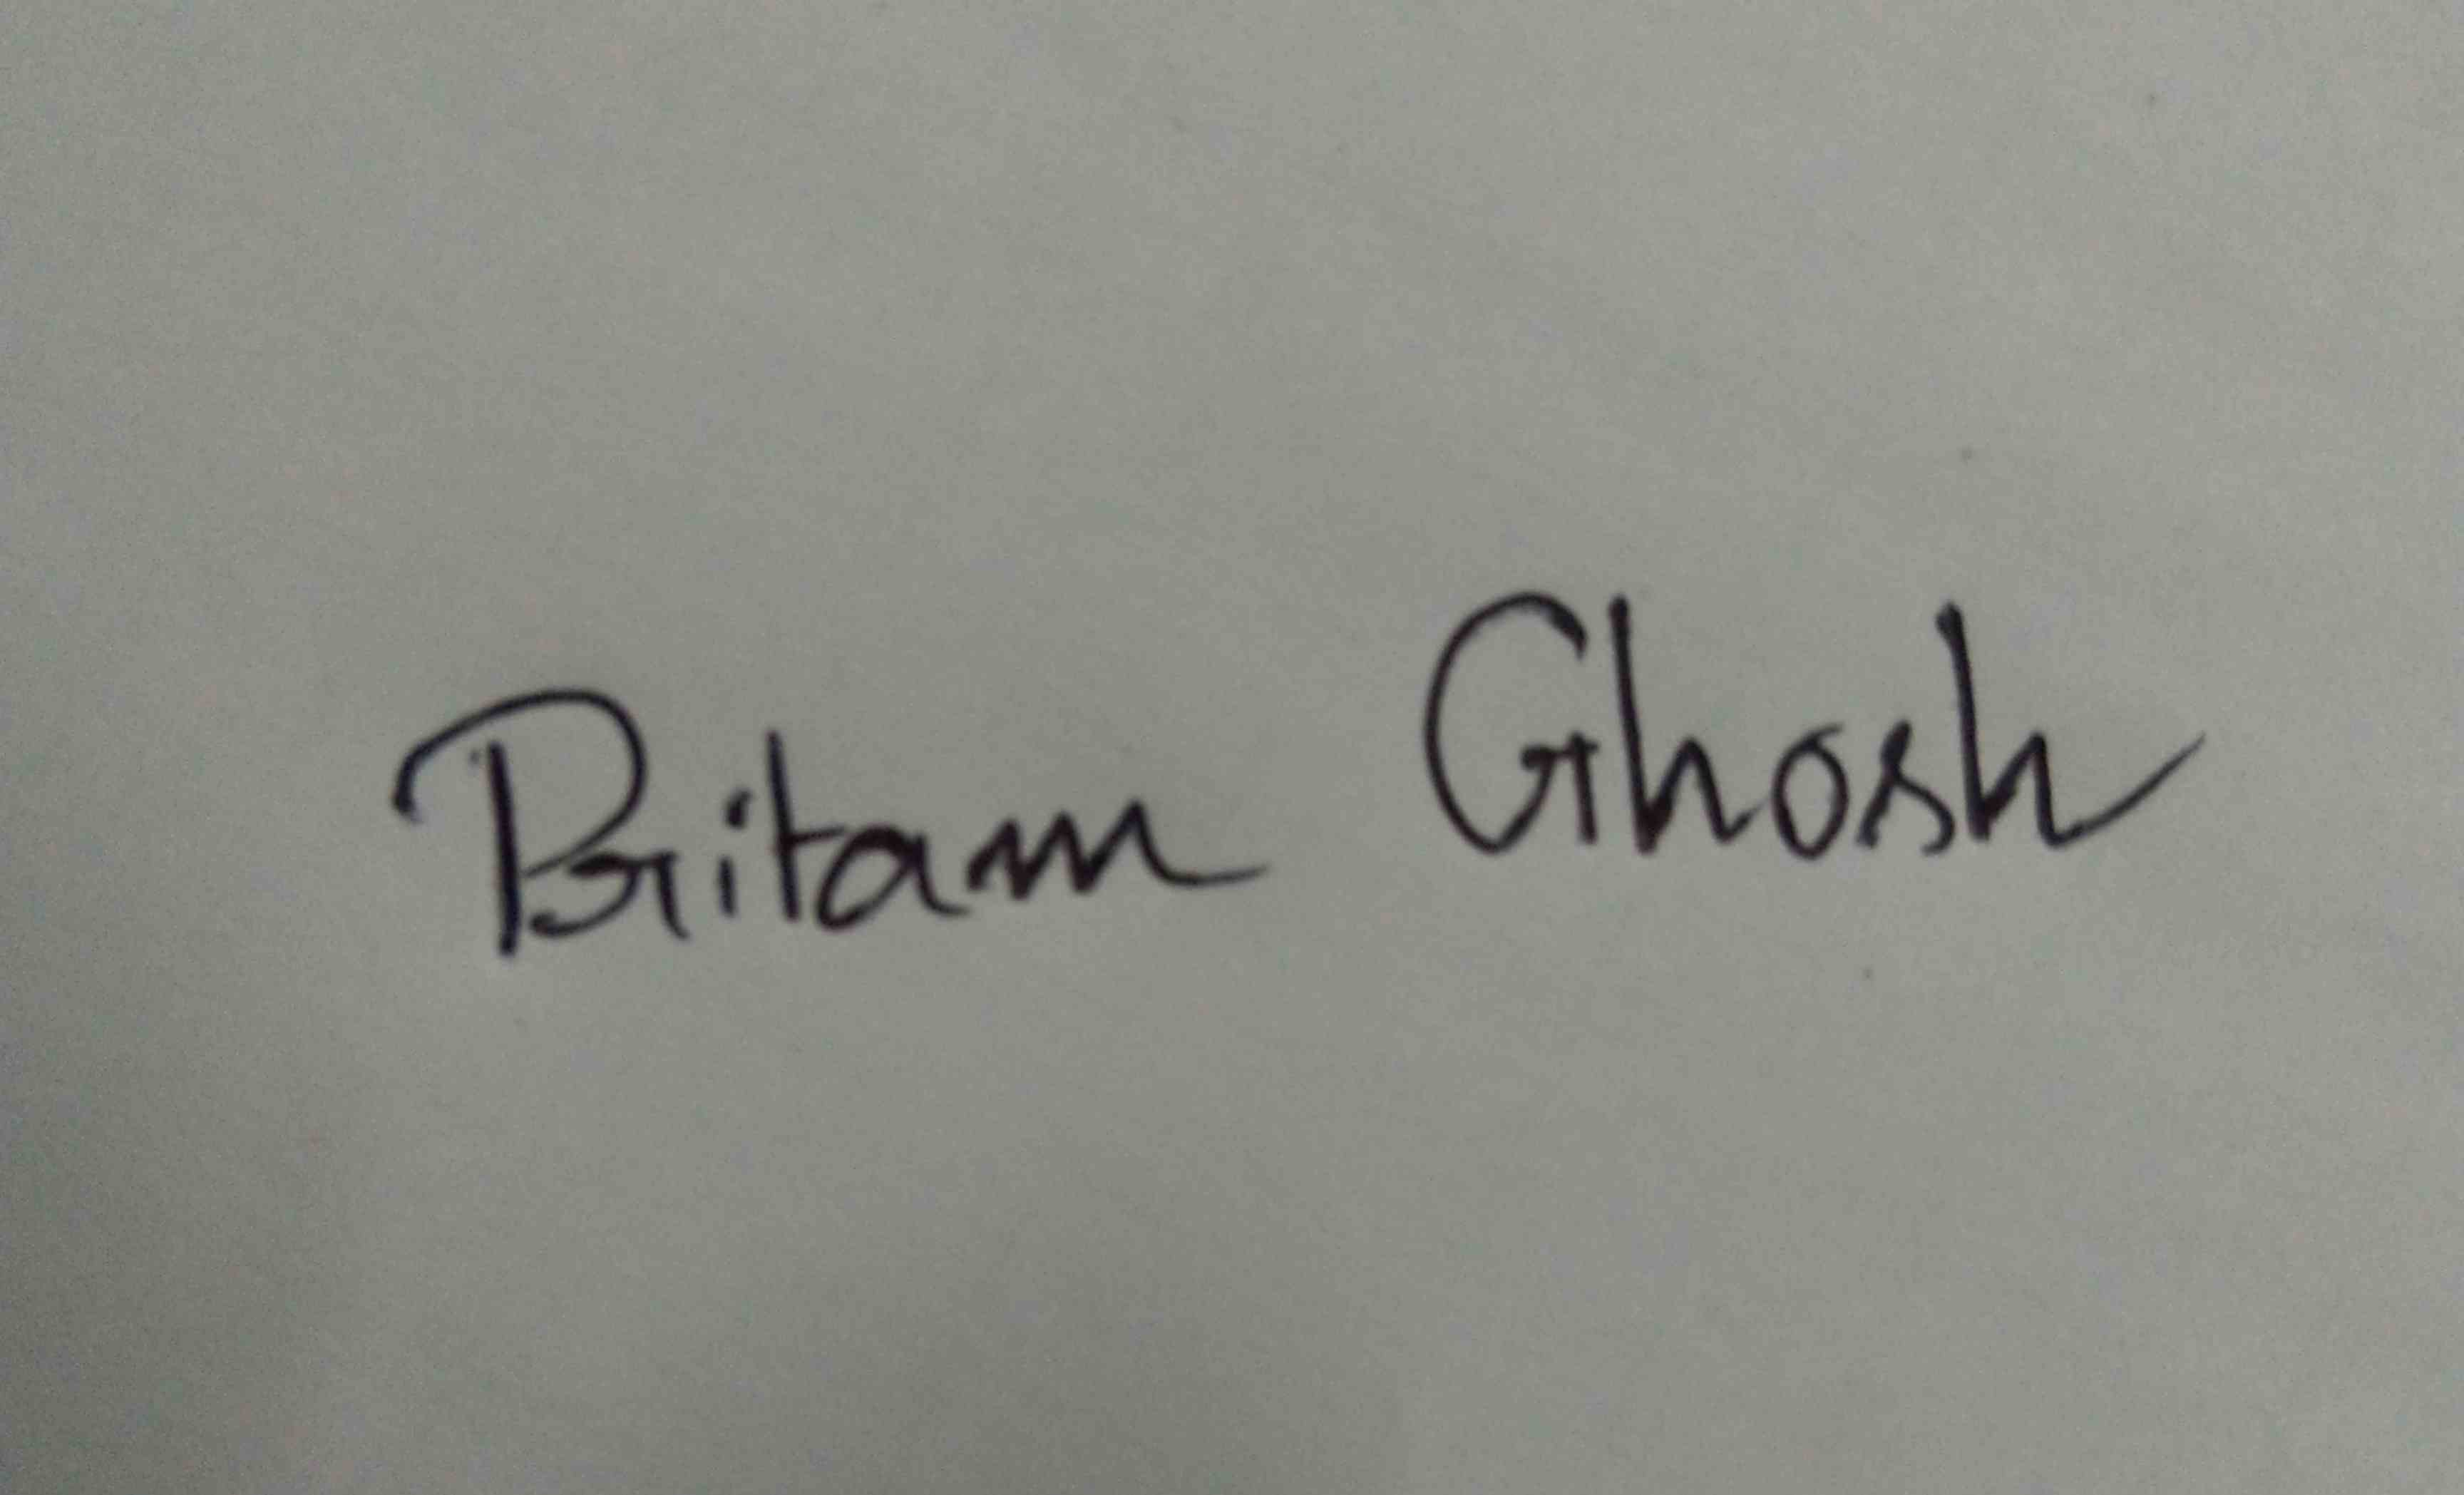 Pritam Ghosh